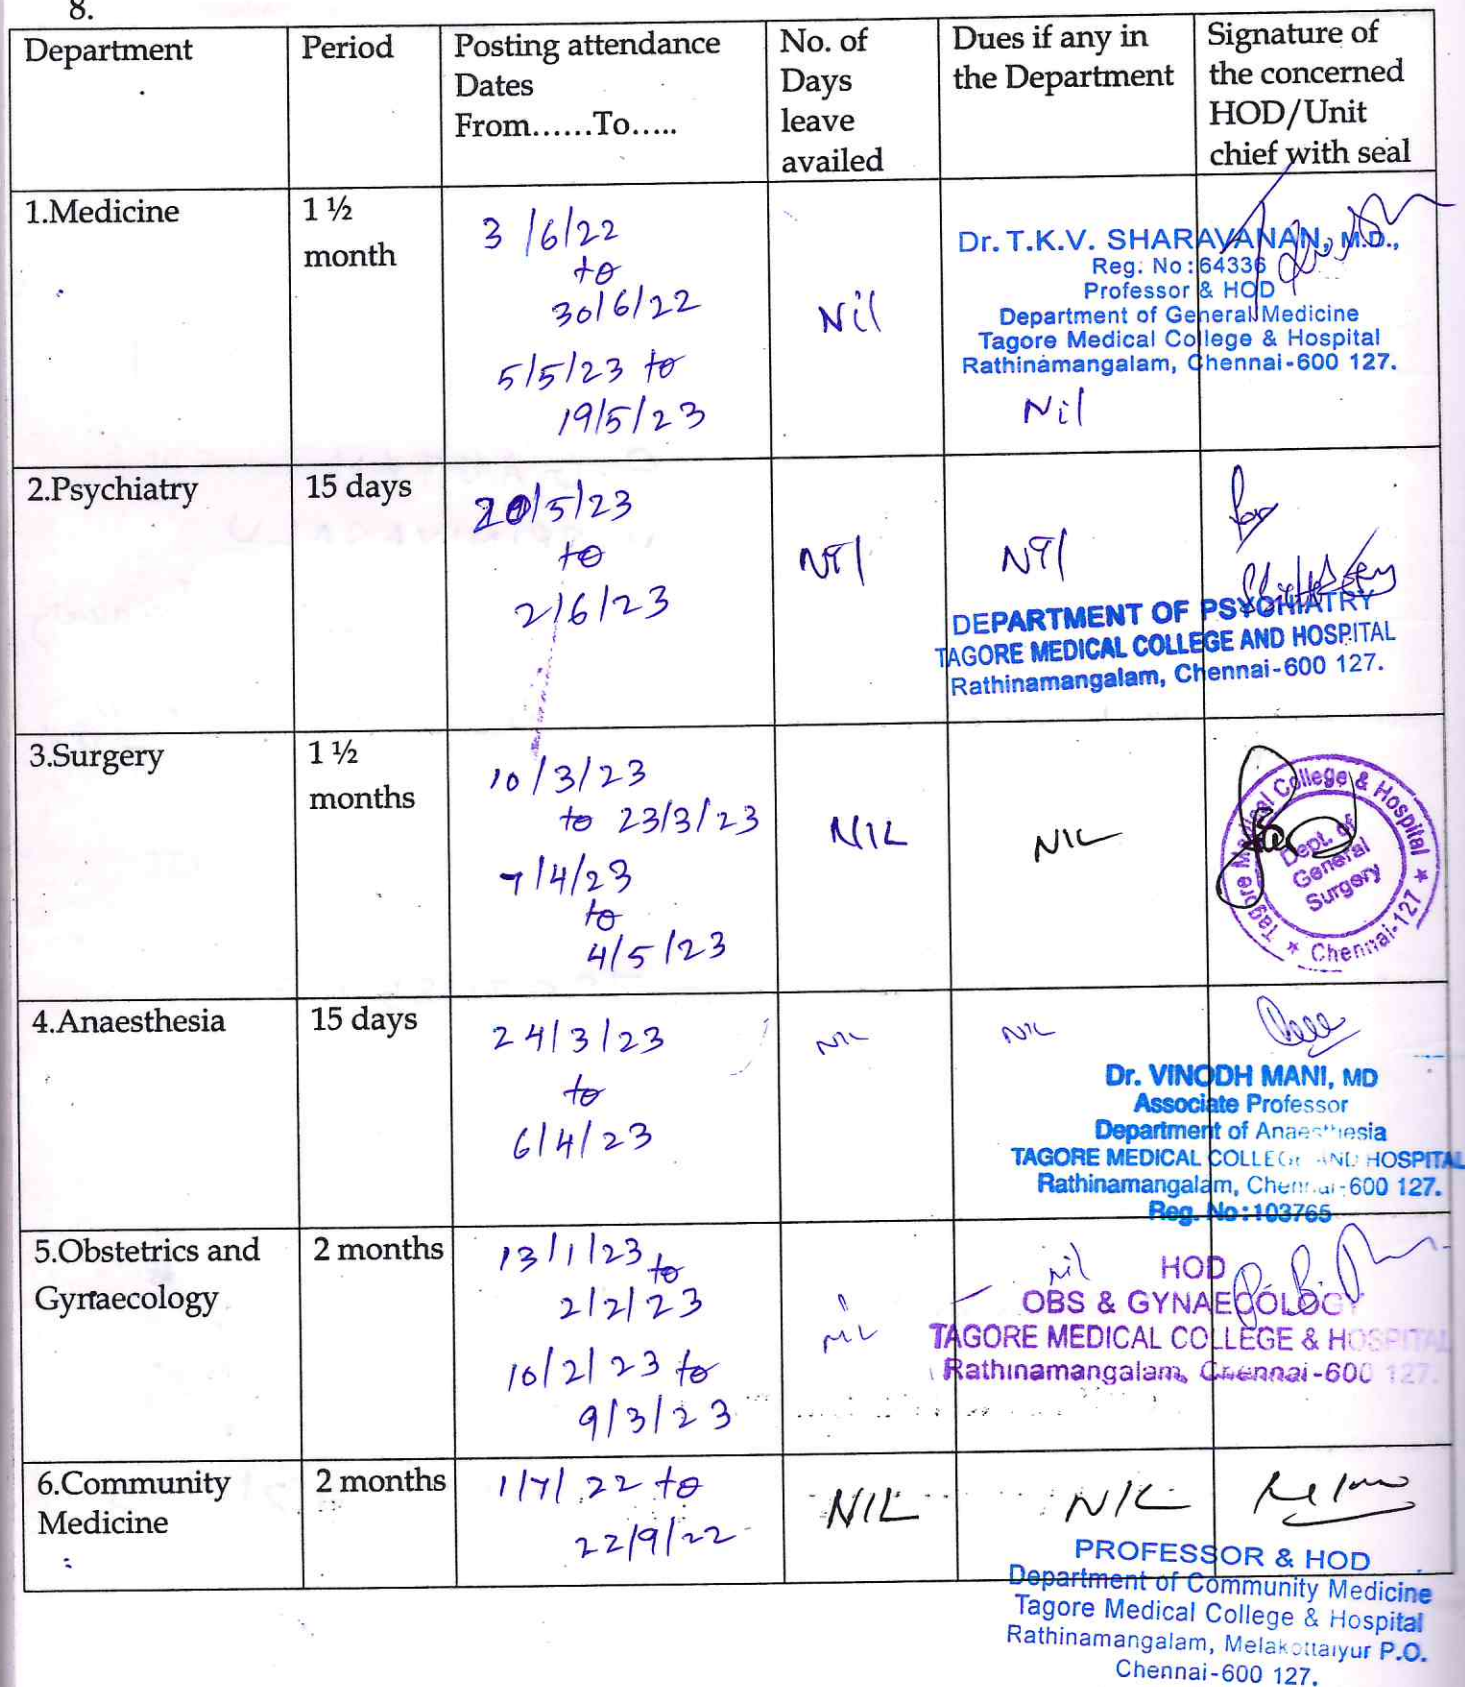 8.
Department
Period
Posting attendance
Dates
From......To.....
No. of
Days
leave
availed
Dues if any in
the Department
Signature of
the concerned
HOD/Unit
chief with seal
1.Medicine
1 ½
month
3/6/22
to
30/6/22
5/5/23 to
19/5/23
Nil
Dr. T.K.V. SHARAVANAN, M.D.,
Reg. No:64336
Professor & HOD
Department of General Medicine
Tagore Medical College & Hospital
Rathinamangalam, Chennai-600 127.
Nil
2.Psychiatry
15 days
20/5/23
to
2/6/23
NIl
NIl
DEPARTMENT OF PSYCHIATRY
TAGORE MEDICAL COLLEGE AND HOSPITAL
Rathinamangalam, Chennai-600 127.
3.Surgery
1 ½
months
10/3/23
to 23/3/23
7/4/23
to
4/5/23
NIL
NIL
Tagore Medical College & Hospital
Dept. of
General
Surgery
★ Chennai-127 ★
4.Anaesthesia
15 days
24/3/23
to
6/4/23
NIL
NIL
Dr. VINODH MANI, MD
Associate Professor
Department of Anaesthesia
TAGORE MEDICAL COLLEGE AND HOSPITAL
Rathinamangalam, Chennai-600 127.
Reg. No:103765
5.Obstetrics and
Gynaecology
2 months
13/1/23 to
2/2/23
10/2/23 to
9/3/23
NIL
Nil
HOD
OBS & GYNAECOLOGY
TAGORE MEDICAL COLLEGE & HOSPITAL
Rathinamangalam, Chennai-600 127.
6.Community
Medicine
2 months
1/7/22 to
22/9/22
NIL
NIL
PROFESSOR & HOD
Department of Community Medicine
Tagore Medical College & Hospital
Rathinamangalam, Melakottaiyur P.O.
Chennai-600 127.